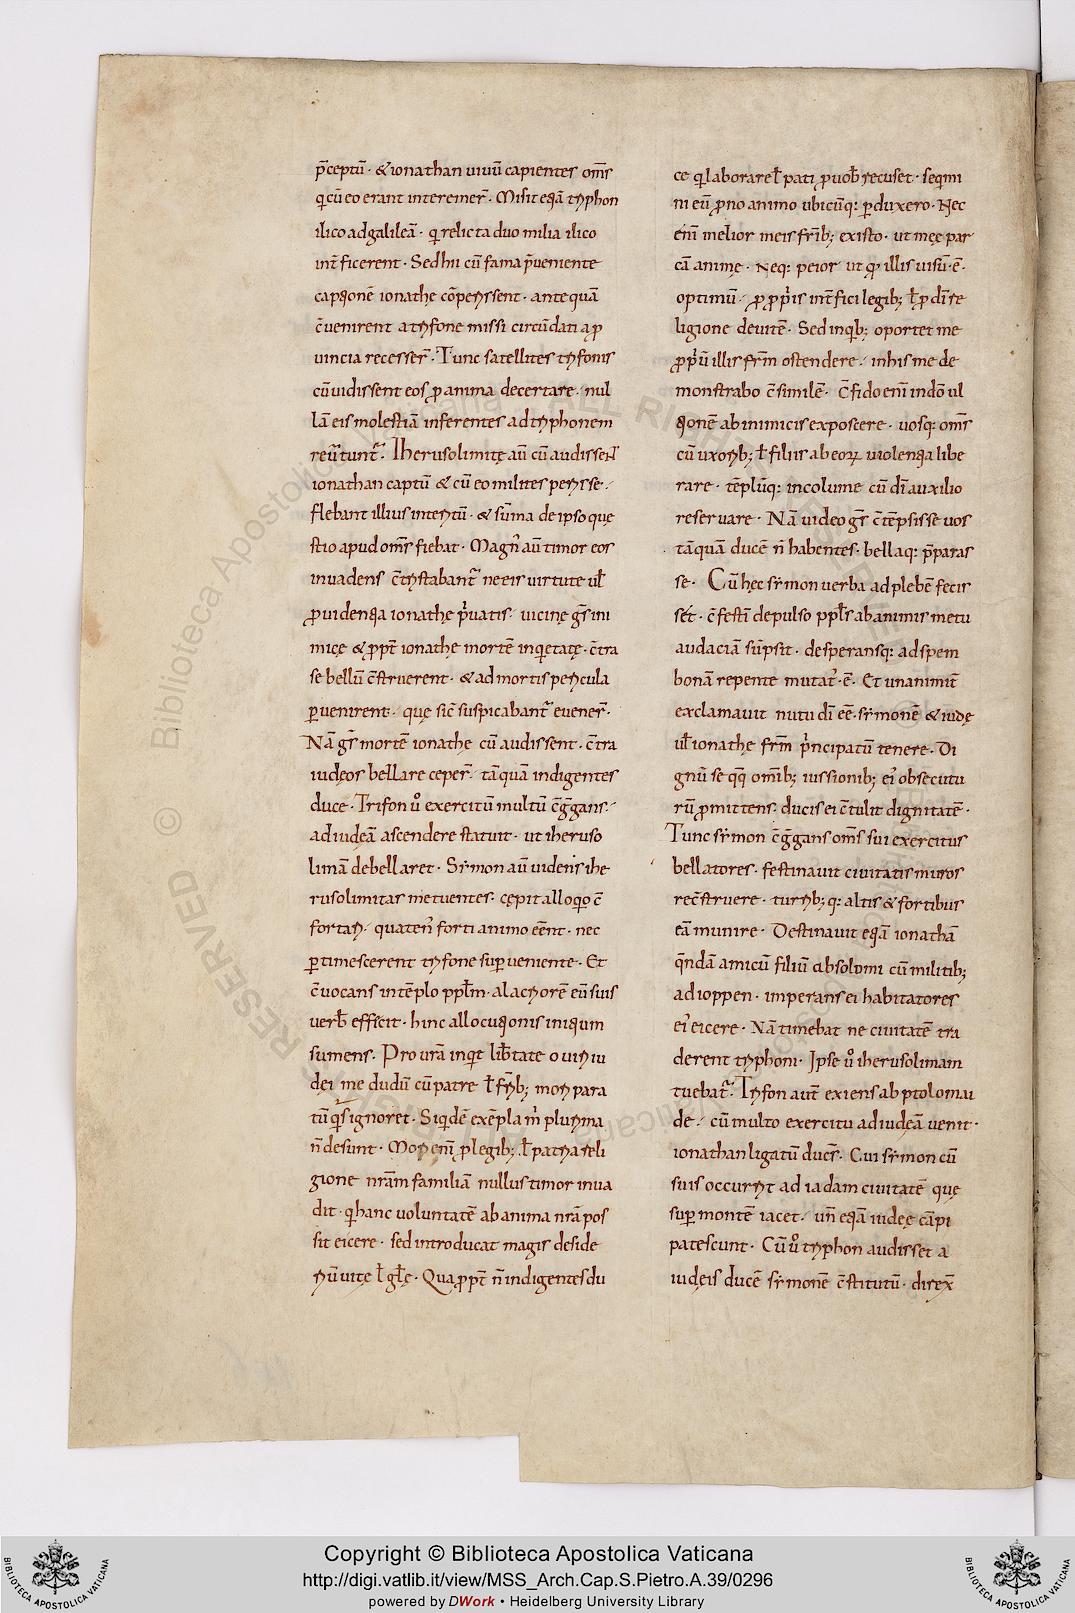 p̄ceptū · & ionathan vivū capientes om̄s
qi cū eo erant interemer̄ · Misit eqā tryphon
ilico ad galileā · qi relicta duo milia ilico
int̄ficerent · Sed hii cū fama p̄veniente
captionē ionathę cōperissent · ante quā
c̄venirent a tryfone missi circūdati a pro
vincia recesser̄ · Tunc satellites tryfonis
cū vidissent eos pro anima decertare · nul
lā eis molestiā inferentes ad tryphonem
reūtunt̄ · Iherusolimitę aū cū audissent
ionathan captū & cū eo milites perisse ·
flebant illius interitū · & sūma de ipso que
stio apud om̄s fiebat · Magn̄ aū timor eos
invadens c̄tristabant̄ ne eis virtute ul̄
providentia ionathę p̄vatis · vicinę ḡs ini
micę & ppt̄ ionathę mortē inquietatę · c̄tra
se bellū c̄struerent · & ad mortis pericula
pervenirent · quę sic̄ suspicabant̄ evener̄ ·
Nā ḡs mortē ionathę cū audissent · c̄tra
iudęos bellare ceper̄ · tā quā indigentes
duce · Trifon ů exercitū multū c̄ḡgans ·
ad iudęā ascendere statuit · ut iheruso
limā debellaret · Symon aū videns ihe
rusolimitas metuentes · cępit alloquio c̄
fortari · quaten̄ forti animo eēnt · nec
pertimescerent tryfone superveniente · Et
c̄vocans in tēplo ppl̄m · alacriorē eū suis
verb̄ effecit · hinc allocutionis iniqum
sumens · Pro vrā inqt̄ lib̄tate o viri iu
dęi me dudū cū patre l̄ fr̄ib; mori para
tū qis ignoret · Siqidē exēpla m̄ plurima
n̄ desunt · Mori enī pro legib; l̄ patria reli
gione nrām familiā nullus timor inva
dit · qi hanc voluntatē ab anima nrā pos
sit eicere · sed introducat magis deside
riū vitę l̄ gl̄ę · Qua ppt̄ n̄ indigentes du
ce qi laborare l̄ pati pro vob̄ recuset · seqimi
ni eū prono animo ubicūq: perduxero · Nec
enī melior meis fr̄ib; existo · ut męę par
cā animę · Neq: peior ut qd illis visū · ē ·
optimū · pro pprīs int̄fici legib; l̄ pro dī re
ligione devitē · Sed inqb; oportet me
pprīū illis fr̄m ostendere · in his me de
monstrabo c̄similē · C̄fido enī in dō ul
tionē ab inimicis exposcere · vosq: om̄s
cū uxorib; l̄ filiis ab eorꝝ violentia libe
rare · tēplūq: incolume cū dī auxilio
reservare · Nā video ḡs c̄tēpsisse vos
tā quā ducē n̄ habentes · bellaq: p̄paras
se · Cū hęc symon verba ad plebē fecis
set · c̄festī depulso ppls̄ ab animis metu
audaciā sūpsit · desperansq: ad spem
bonā repente mutat̄ · ē · Et unanimit̄
exclamavit nutu dī eē · symonē & iudę
ul̄ ionathę fr̄m p̄ncipatū tenere · Di
gnū se qq̄ omīb; iussionib; ei̓ obsecutu
rū promittens · ducis ei c̄tulit dignitatē ·
Tunc symon c̄ḡgans om̄s sui exercitus
bellatores · festinavit civitatis muros
rec̄struere · turrib; q: altis & fortibus
eā munire · Destinavit eqā ionathā
q̄ndā amicū filiū absolomi cū militib;
ad ioppen · imperans ei habitatores
ei̓ eicere · Nā timebat ne civitatē tra
derent tryphoni · Ipse ů iherusolimam
tuebat̄ · Trifon aut̄ exiens ab ptolomai
de · cū multo exercitu ad iudęā venit ·
ionathan ligatū ducēs · Cui symon cū
suis occurrit ad iadam civitatē quę
super montē iacet · un̄ eqā iudęę cāpi
patescunt · Cū ů tryphon audisset a
iudęis ducē symonē c̄stitutū · direx̄
Copyright © Biblioteca Apostolica Vaticana
http://digi.vatlib.it/view/MSS_Arch.Cap.S.Pietro.A.39/0296
powered by DWork • Heidelberg University Library